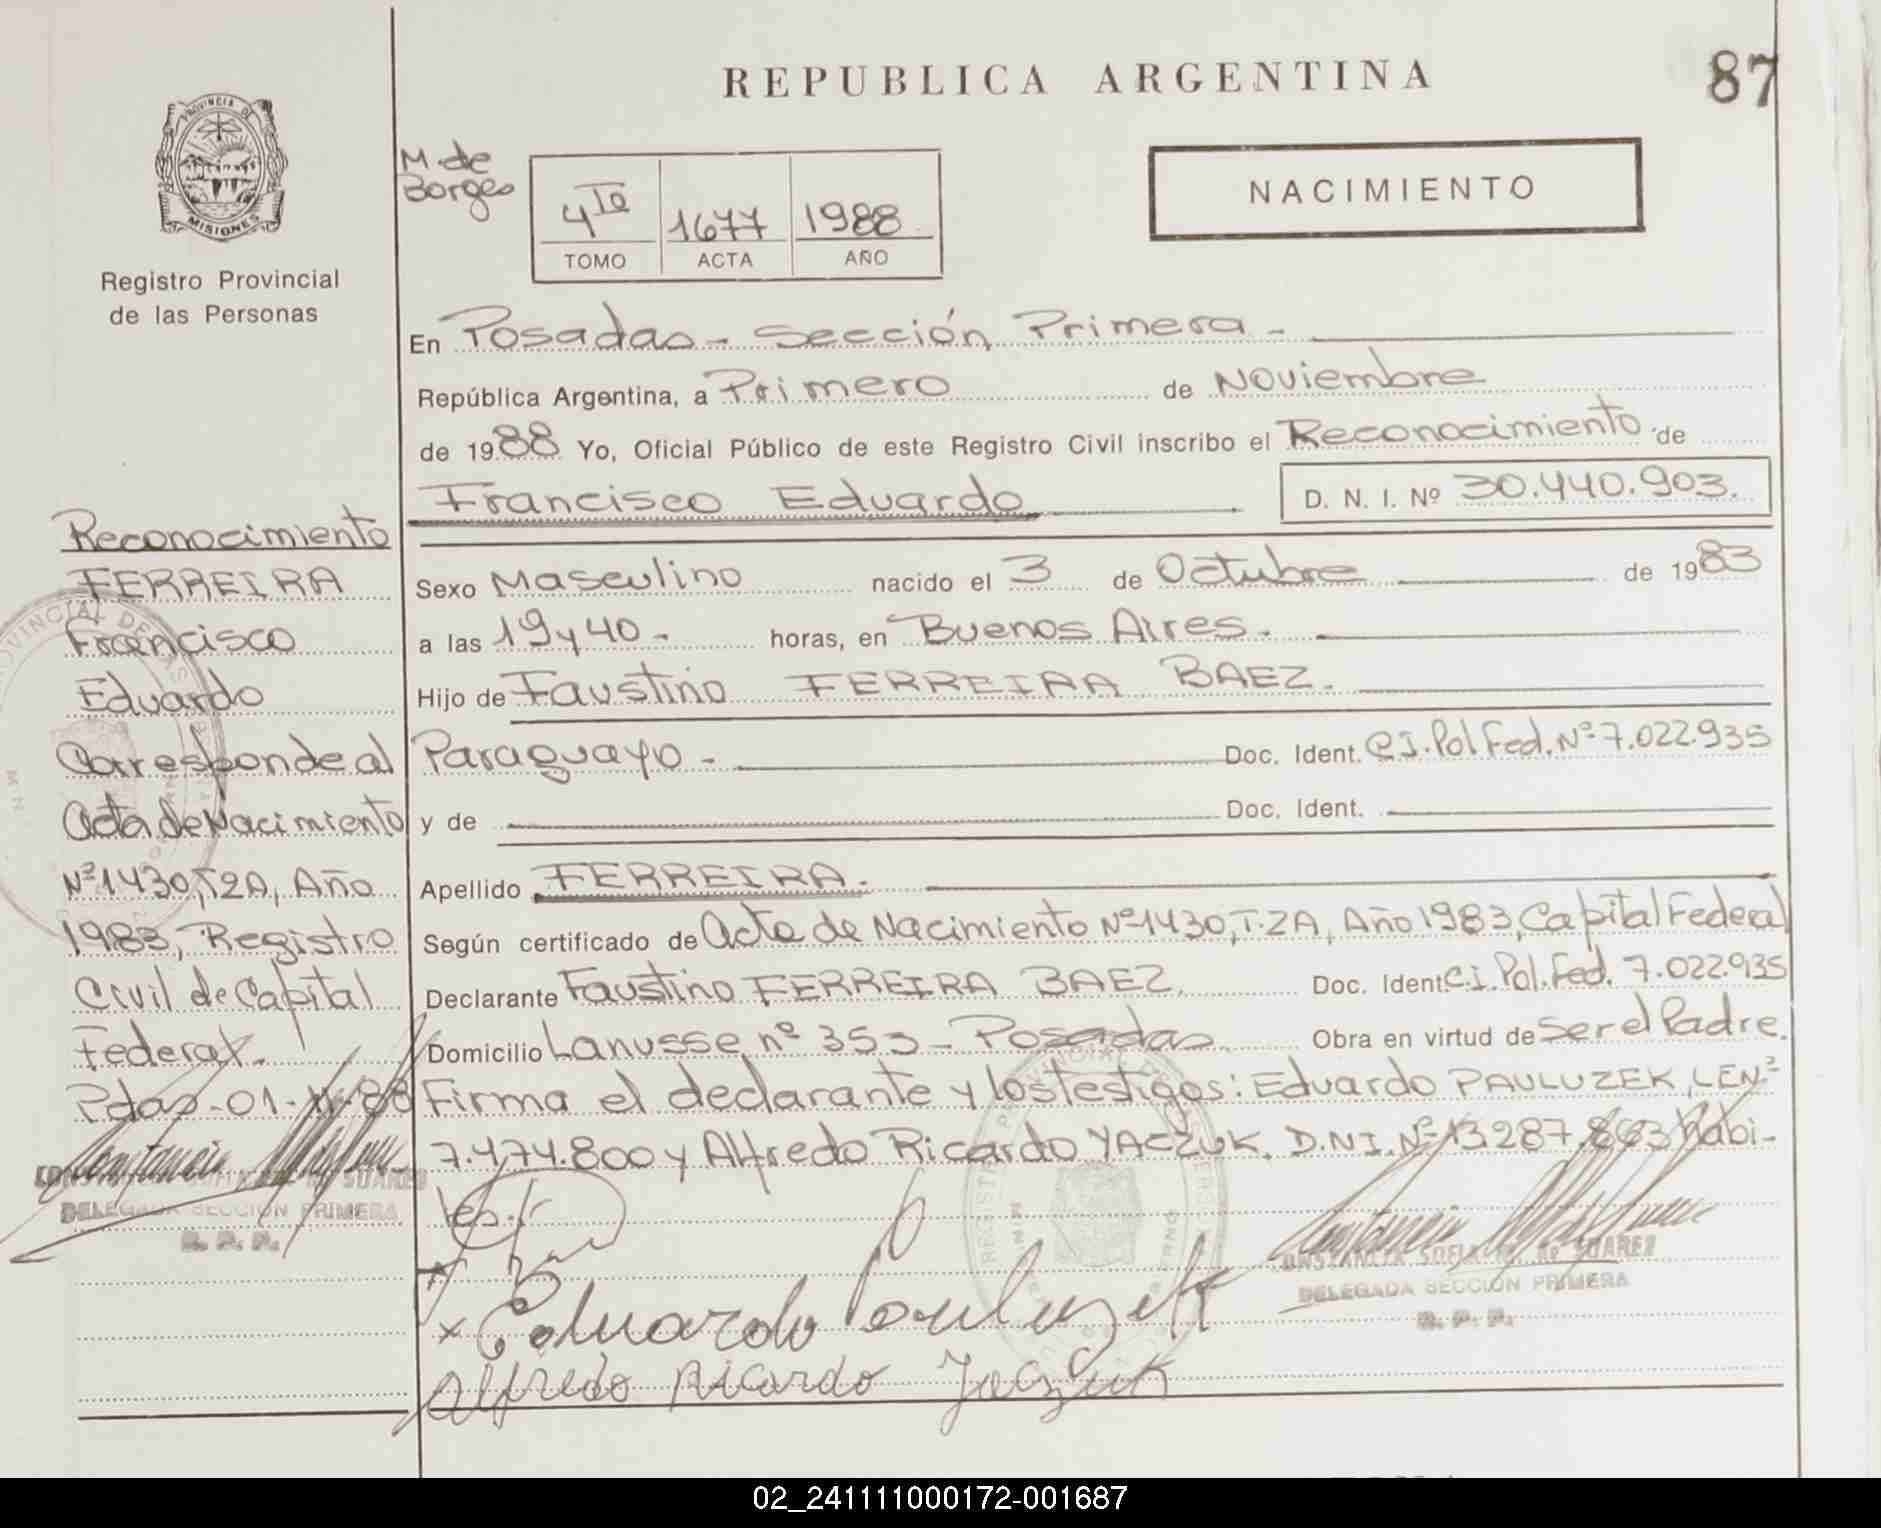 REPUBLICA ARGENTINA
87
PROVINCIA DE
MISIONES
Registro Provincial
de las Personas
M. de
Borges
4 Iº 1677 1988
TOMO ACTA AÑO
NACIMIENTO
En Posadas - Sección Primera -
República Argentina, a Primero de Noviembre
de 1988 Yo, Oficial Público de este Registro Civil inscribo el Reconocimiento de
Francisco Eduardo D. N. I. Nº 30.440.903.
Sexo Masculino nacido el 3 de Octubre de 1983
a las 19 y 40 - horas, en Buenos Aires.
Hijo de Faustino FERREIRA BAEZ.
Paraguayo - Doc. Ident. C.I. Pol Fed. Nº 7.022.935
y de Doc. Ident.
Apellido FERREIRA.
Según certificado de Acta de Nacimiento Nº 1430, T. 2A, Año 1983, Capital Federal
Declarante Faustino FERREIRA BAEZ. Doc. Ident. C.I. Pol. Fed. 7.022.935
Domicilio Lanusse nº 353 - Posadas. Obra en virtud de Ser el Padre.
Firma el declarante y los testigos: Eduardo PAULUZEK, LE Nº
7.474.800 y Alfredo Ricardo YACZUK. D.N.I. Nº 13.287.863 habi-
les.
x Eduardo Pauluzek
Alfredo Ricardo Jaczuk
DELEGADA SECCION PRIMERA
R. P. P.
Reconocimiento
FERREIRA
Francisco
Eduardo
Corresponde al
Acta de Nacimiento
Nº 1430, T2A, Año
1983, Registro
Civil de Capital
Federal.
Pdas - 01-11-88
DELEGADA SECCION PRIMERA
R. P. P.
02_241111000172-001687